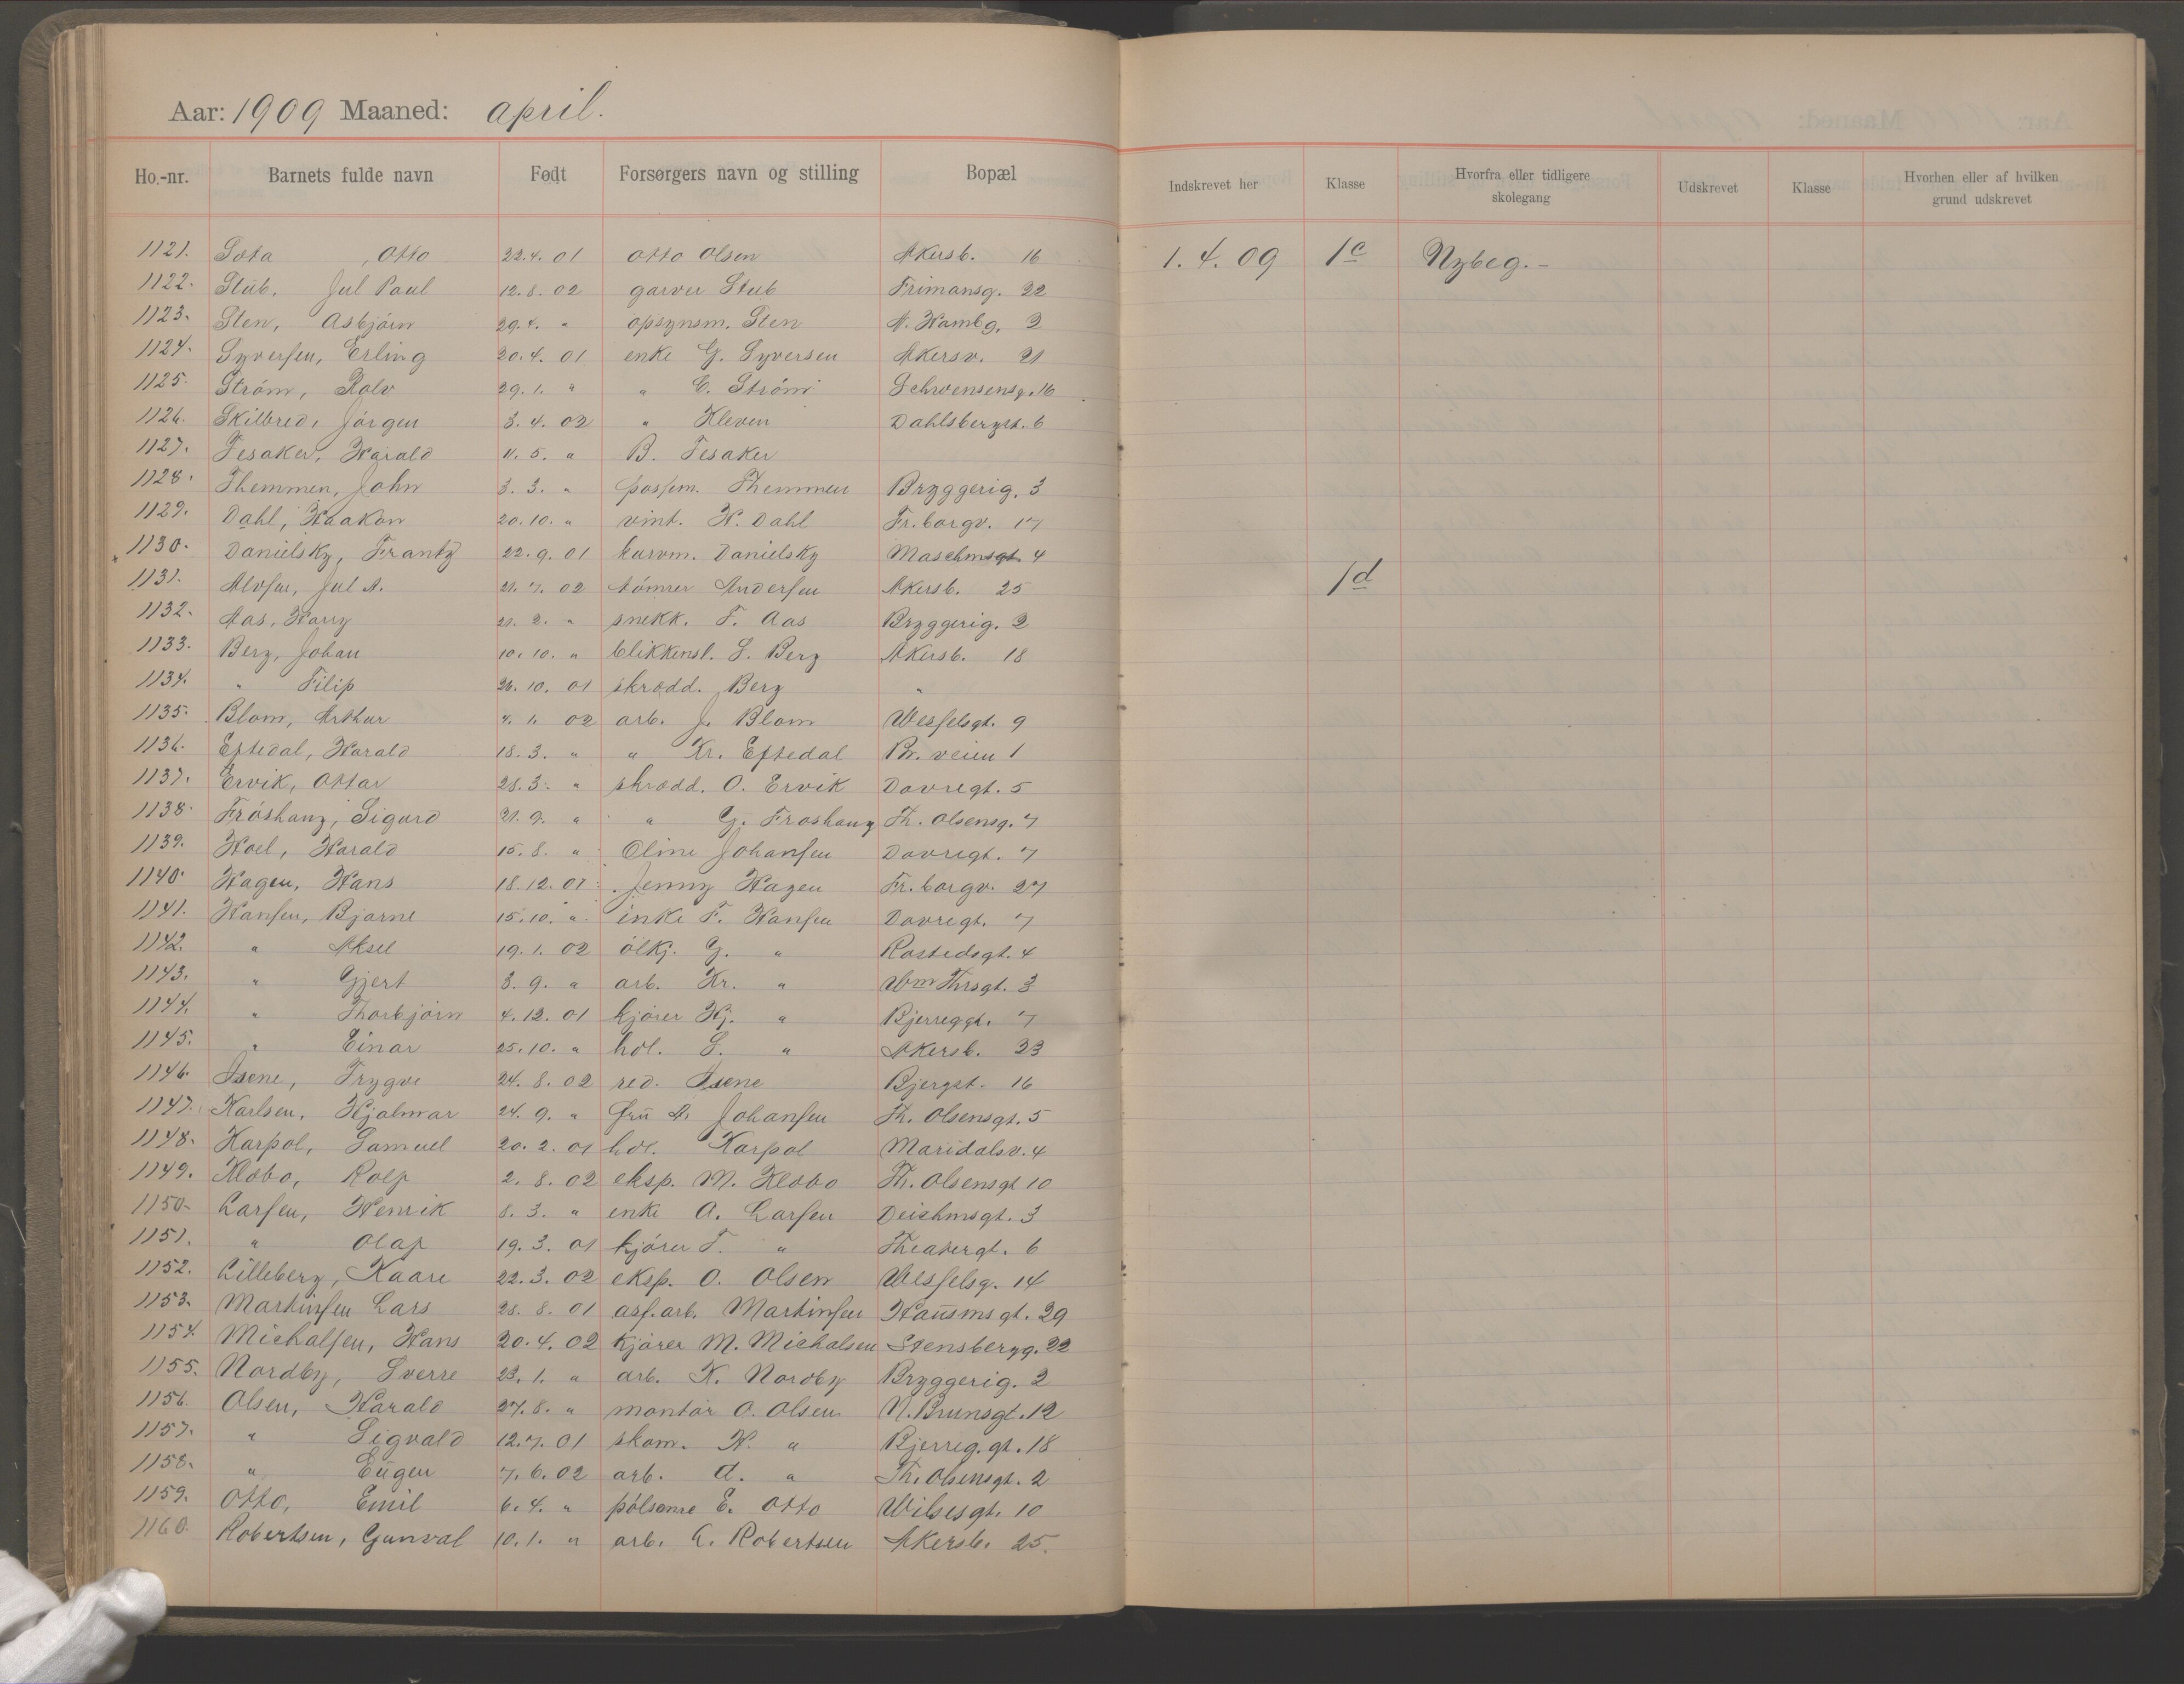 Aar: 1909 Maaned: april.
Ho.-nr. Barnets fulde navn Født Forsørgers navn og stilling Bopæl Indskrevet her Klasse Hvorfra eller tidligere skolegang Udskrevet Klasse Hvorhen eller af hvilken grund udskrevet
1121. Sota , Otto 22.4. 01 Otto Olsen Akersb. 16 1.4.09 1c Nybeg.-
1122. Stub, Jul Paul 12.8. 02 garver Stub Frimansg. 22
1123. Sten, Asbjörn 29.4. " opsynsm. Sten N. Hambg. 2
1124. Syversen, Erling 20.4. 01 enke G. Syversen Akersv. 21
1125. Ström, Rolv 29.1. " " C. Ström Schwensensg. 16
1126. Skilbred, Jörgen 3.4. 02 " Kleven Dahlsbergst. 6
1127. Tesaker, Harald 11.5. " B. Tesaker
1128. Themmen, John 3.3. " possem. Themmen Bryggerig. 3
1129. Dahl, Haakon 20.10. " vint. H. Dahl Fr.borgv. 17
1130. Danielsky, Frantz 22.9. 01 kurvm. Danielsky Maschmsgt. 4
1131. Alvsen, Jul A. 21.7. 02 tömrer Andersen Akersb. 25 1d
1132. Aas, Harry 21.2. " snekk. F. Aas Bryggerig. 2
1133. Berg, Johan 10.10. " blikkensl. S. Berg Akersb. 18
1134. " Filip 26.10. 01 skrodd. Berg "
1135. Blom, Arthur 4.1. 02 arb. J. Blom Wesselsgt. 9
1136. Eftedal, Harald 18.3. " " Kr. Eftedal Br. veien 1
1137. Ervik, Ottar 28.3. " skrodd. O. Ervik Dovregt. 5
1138. Fröshang, Sigurd 21.9. " " G. Froshaug Th. Olsensg. 7
1139. Hoel, Harald 15.8. " Oline Johansen Dovregt. 7
1140. Hagen, Hans 18.12. 01 Jenny Hagen Fr.borgv. 27
1141. Hansen, Bjarne 15.10. " enke F. Hansen Dovregt. 7
1142. " Aksel 19.1. 02 ölkj. G. " Rostedsgt. 4
1143. " Gjert 3.9. " arb. Kr. " Wm Thrsgt. 3
1144. " Thorbjörn 4.12. 01 kjörer Hj. " Bjerreggt. 7
1145. " Einar 25.10. " hdl. S. " Akersb. 23
1146. Isene, Trygve 24.8. 02 red. Isene Bjergst. 16
1147. Karlsen, Hjalmar 24.9. " fru A. Johansen Th. Olsensgt. 5
1148. Karpol, Samuel 20.2. 01 hdl. Karpol Maridalsv. 4
1149. Klobo, Rolf 2.8. 02 eksp. M. Klobo Th. Olsensgt 10
1150. Larsen, Henrik 8.3. " enke A. Larsen Deichmsgt. 3
1151. " Olaf 19.3. 01 kjörer T. " Theatergt. 6
1152. Lilleberg, Kaare 22.3. 02 eksp. O. Olsen Wesselsg. 14
1153. Martinsen Lars 28.8. 01 asf.arb. Martinsen Hausmsgt. 29
1154. Michalsen, Hans 20.4. 02 kjörer M. Michalsen Stensbergg. 22
1155. Nordby, Sverre 23.1. " arb. K. Nordby Bryggerig. 2
1156. Olsen, Harald 27.8. " montör O. Olsen N. Brunsgt. 12
1157. " Sigvald 12.7. 01 skom. H. " Bjerreg.gt. 18
1158. " Eugen 7.6. 02 arb. A. " Th. Olsensgt. 2
1159. Otto, Emil 6.4. " E. Otto Wilsesgt. 10
1160. Robertsen, Gunval 10.1. " arb. A. Robertsen Akersb. 25.